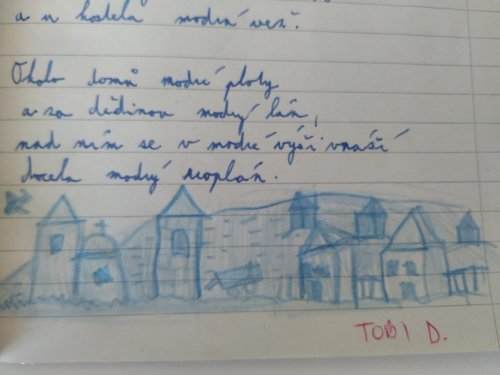 a u kostela modrá věž.
Okolo domů modré ploty
a za dědinou modrý lán,
nad ním se v modré výši vznáší
docela modrý aeroplán.
TOBI D.